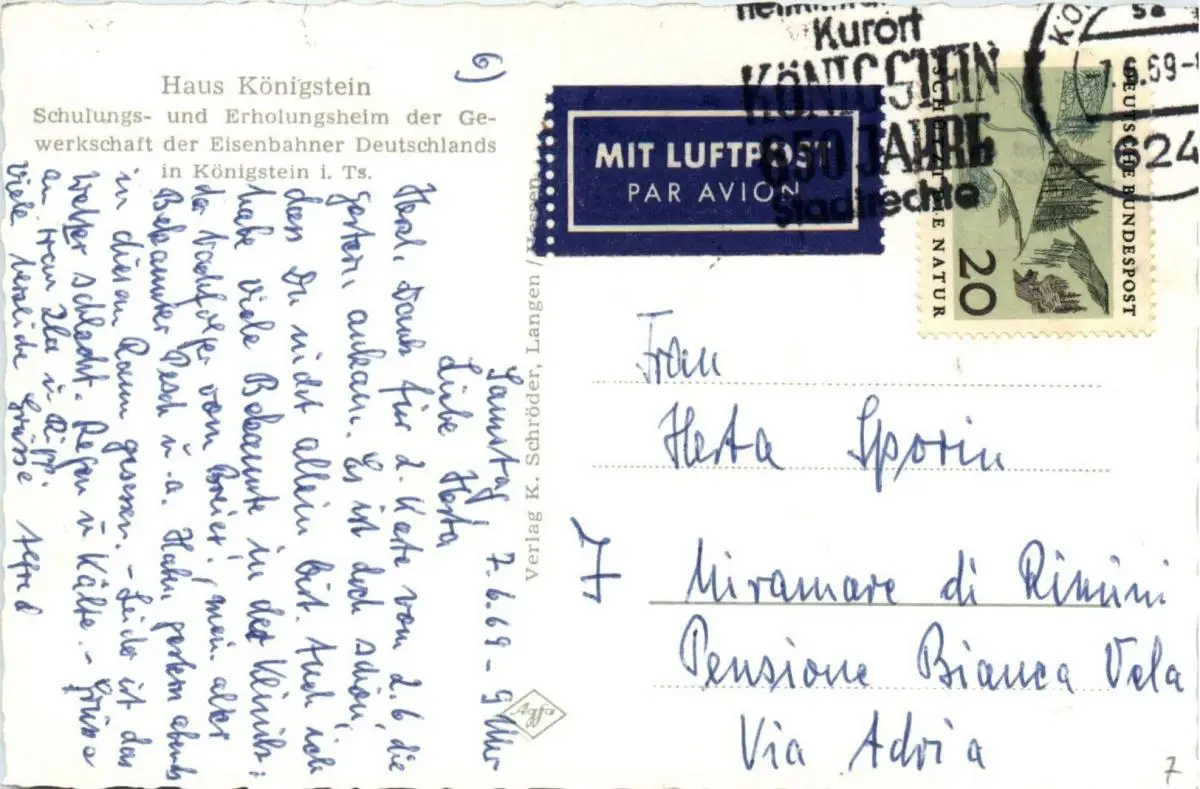 Haus Königstein
Schulungs- und Erholungsheim der Ge-
werkschaft der Eisenbahner Deutschlands
in Königstein i. Ts.
6)
Samstag 7.6.69 - 9 Uhr
Liebe Herta
Herzl. Dank für d. Karte vom 2.6, die
gestern ankam. Es ist doch schön,
dass Du nicht allein bist. Auch ich
habe viele Bekannte in der Klinik:
der Nachfolger vom Breier, mein alter
Bekannter Pesch u. a. Haben gestern abends
in diesem Raum gesessen. - Leider ist das
Wetter schlecht. Regen u Kälte. - Grüsse
an Frau
Viele herzliche Grüsse Alfred
Verlag K. Schröder, Langen / Hessen
Agfa
MIT LUFTPOST
PAR AVION
Kurort
KÖNIGSTEIN
650 JAHRE
Stadtrechte
7.6.69
624
DEUTSCHE BUNDESPOST
20
Frau
Herta Sporin
7 Miramare di Rimini
Pensione Bianca Vela
Via Adria
7